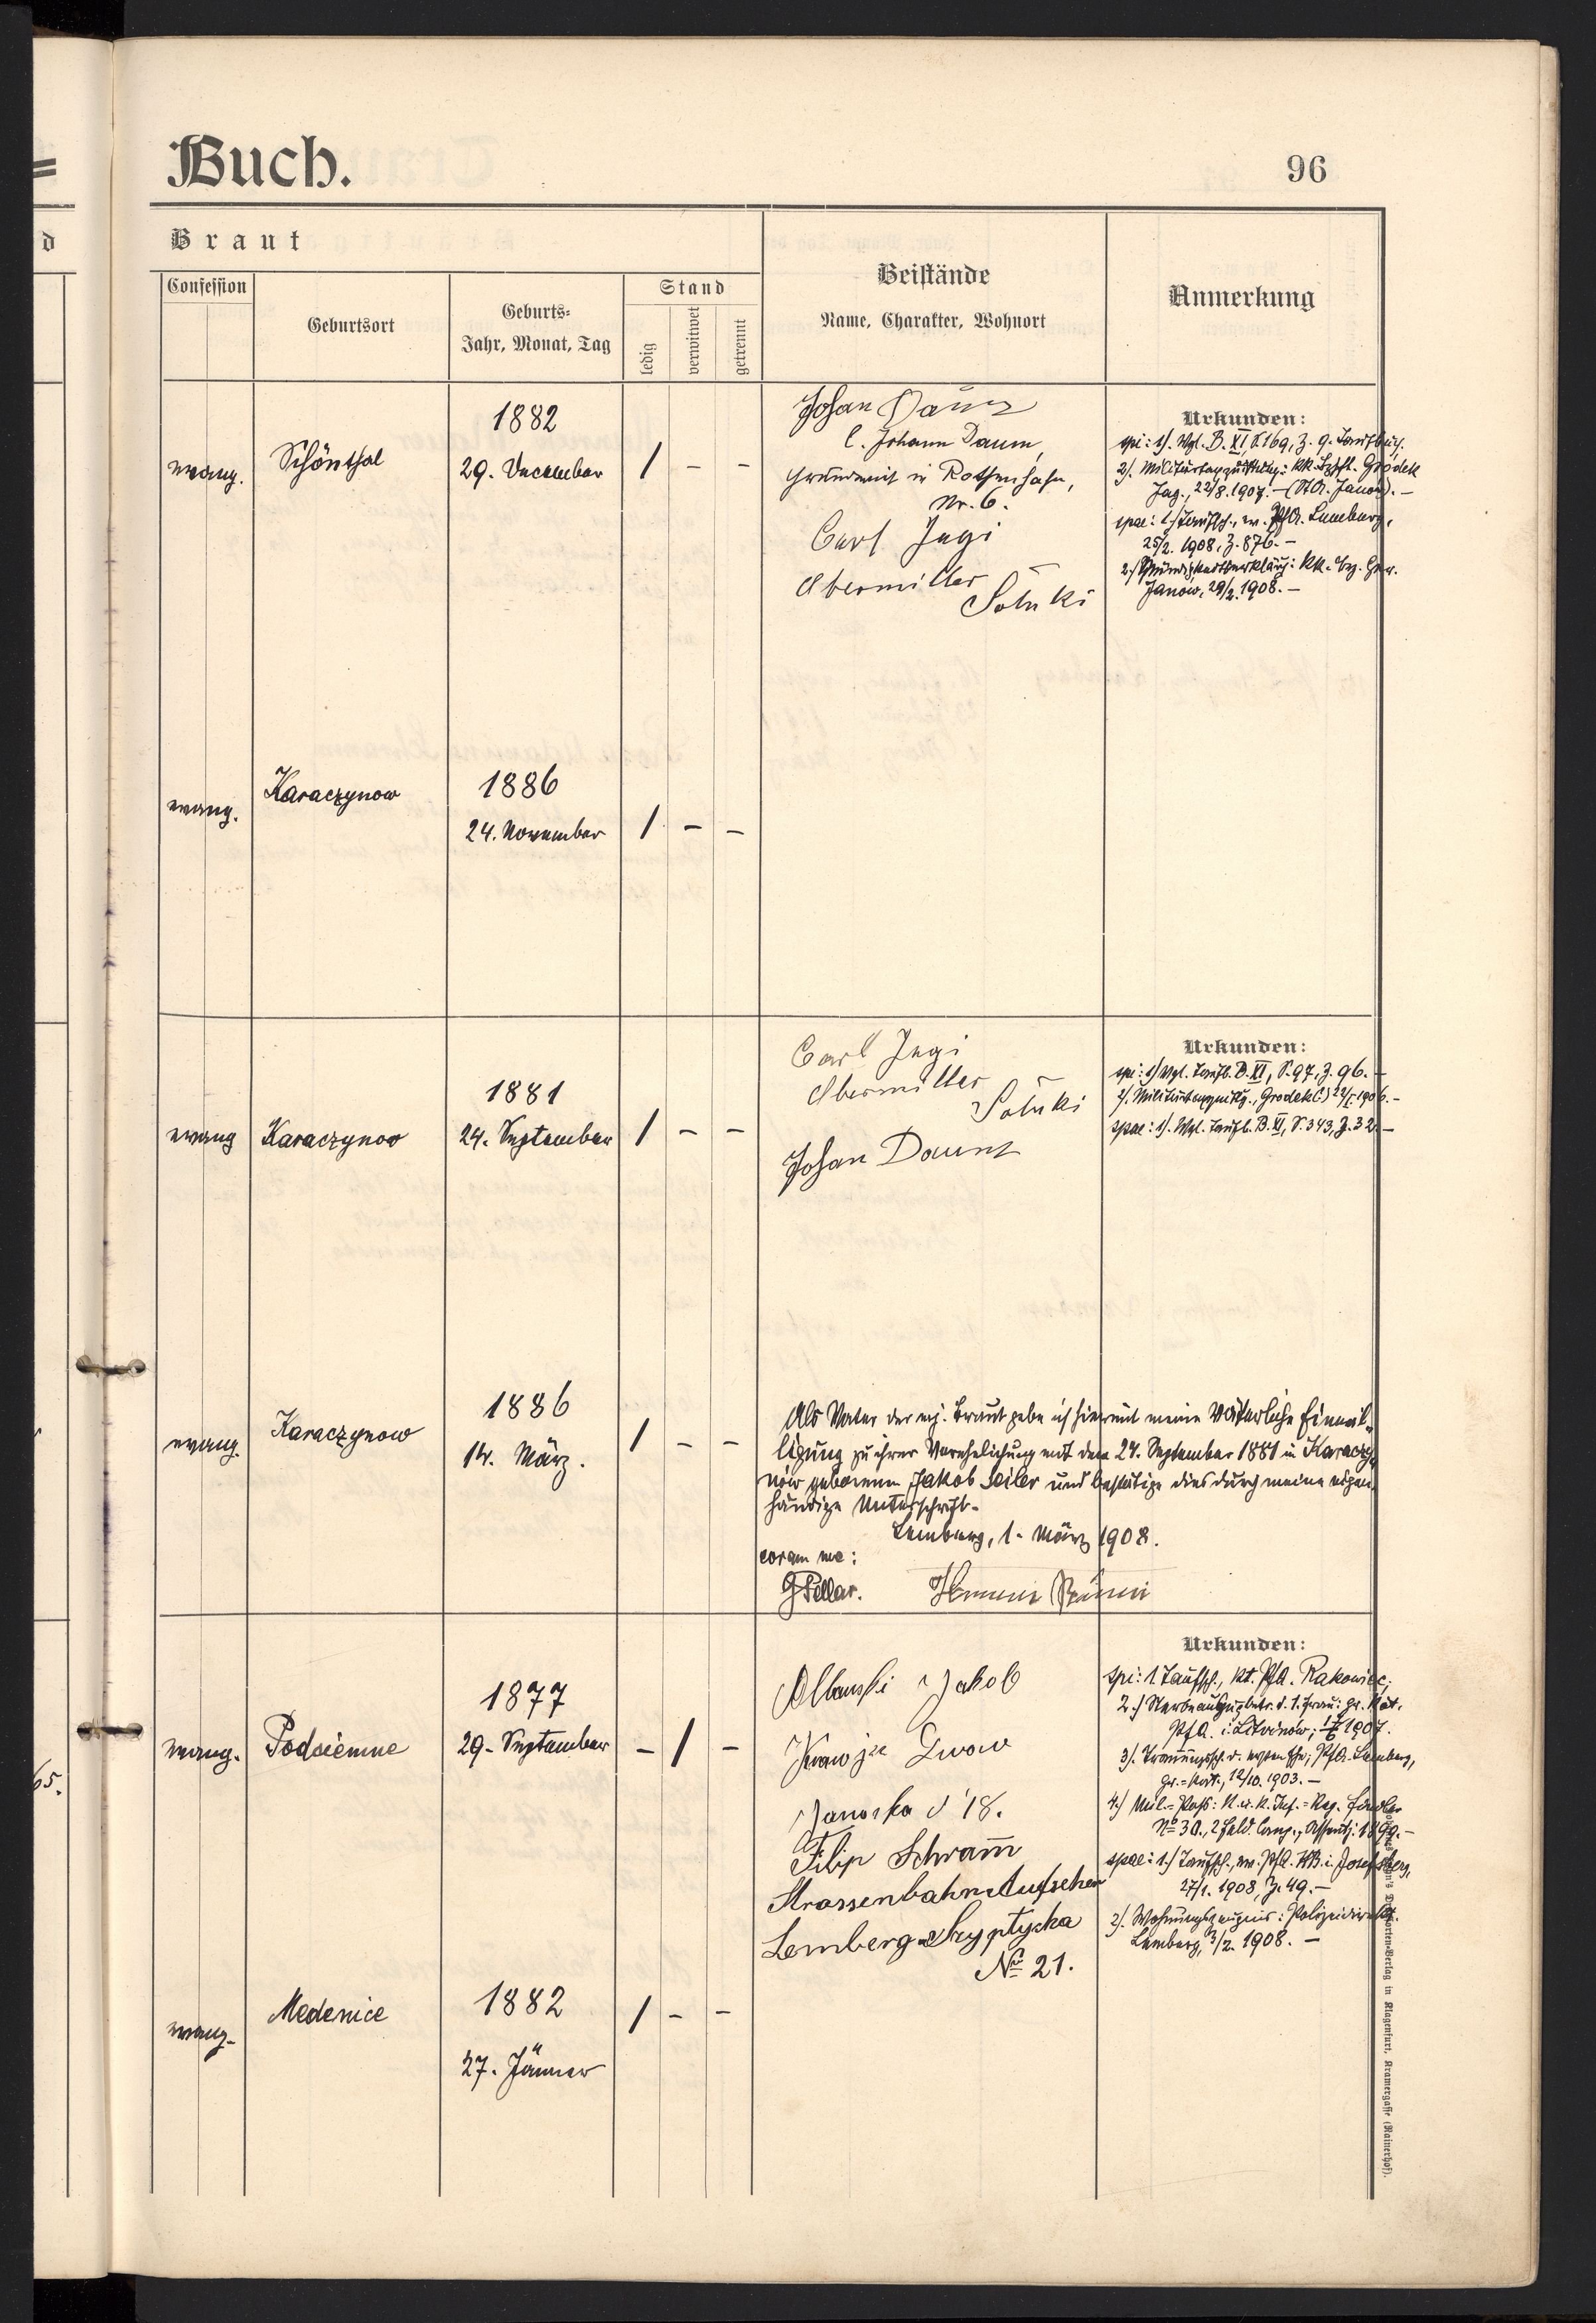 Buch.
96
Braut
Confession
Geburtsort
Geburts-
Jahr, Monat, Tag
Stand
ledig
verwitwet
getrennt
Beistände
Name, Charakter, Wohnort
Anmerkung
evang.
Schönthal
1882
29. December
/ - -
Johan Daum
l. Johann Daum,
Grundwirt in Rottenhahn,
Nr. 6.
Carl Jegi
Obermiller
Solnki
Urkunden:
spi: 1). Vgl. B. XI, S. 169, Z. 9. Taufbuch.
Jag., 22/8. 1907. - (St. A. Janow). -
spae: 1.) Taufsch., ev. Pf. A. Lemberg,
25/2. 1908, Z. 876. -
Janow, 29/2. 1908. -
evang.
Karaczynow
1886
24. November
/ - -
evang
Karaczynow
1881
24. September
/ - -
Carl Jegi
Obermiller
Solnki
Johan Daum
Urkunden:
spi: 1) Vgl. Taufb. B. XI, S. 97, Z. 96. -
spae: 1). Vgl. Taufb. B. XI, S. 343, Z. 32. -
evang.
Karaczynow
1886
14. März.
/ - -
Als Vater der mj. Braut gebe ich hiermit meine väterliche Einwil-
ligung zu ihrer Verehelichung mit dem 24. September 1881 in Karaczy-
now geborenen Jakob Seiler und bestätige dies durch meine eigen-
händige Unterschrift.
Lemberg, 1. März 1908.
coram me:
GPellar.
Urkunden:
evang.
Podsiemne
1877
29. September
- / -
Jakob
Lwow
Janoska 18.
Filip Schram̄
Strassenbahn Aufseher
Lemberg Skryptycka
No 21.
spi: 1 Taufsch., kt. Pf. A. Rakowiec;
Pf. A. i. Litvinow; 1907.
gr.=kat., 12/10. 1903. -
No 30., 2 Feld Comp., Assentj. 1899. -
spae: 1.) Taufsch., ev. Pf. A. HB. i. Josefsberg,
27/1. 1908, Z. 49. -
2). Wohnungszeugnis: Polizeidirekt.
Lemberg, 3/2. 1908. -
evang.
Medenice
1882
27. Jänner
/ - -
65.
Verlag in Klagenfurt, Kramergasse (Rainerhof).